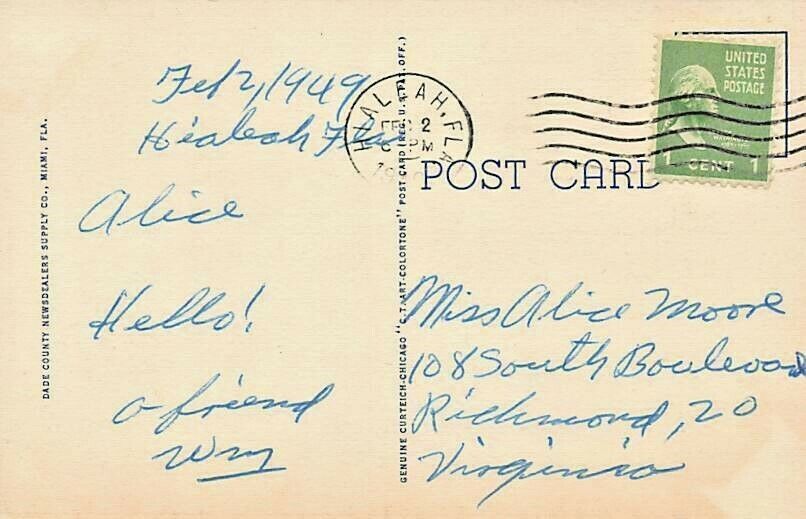 Feb 2, 1949
Hialeah Fla
Alice
Hello!
a friend
Wm
DADE COUNTY NEWSDEALERS SUPPLY CO., MIAMI, FLA.
GENUINE CURTEICH-CHICAGO "C.T. ART-COLORTONE" POST CARD (REG. U.S. PAT. OFF.)
HIALEAH, FLA.
FEB 2
PM
UNITED
STATES
POSTAGE
1 CENT 1
POST CARD
Miss Alice Moore
108 South Boulevard
Richmond, 20
Virginia